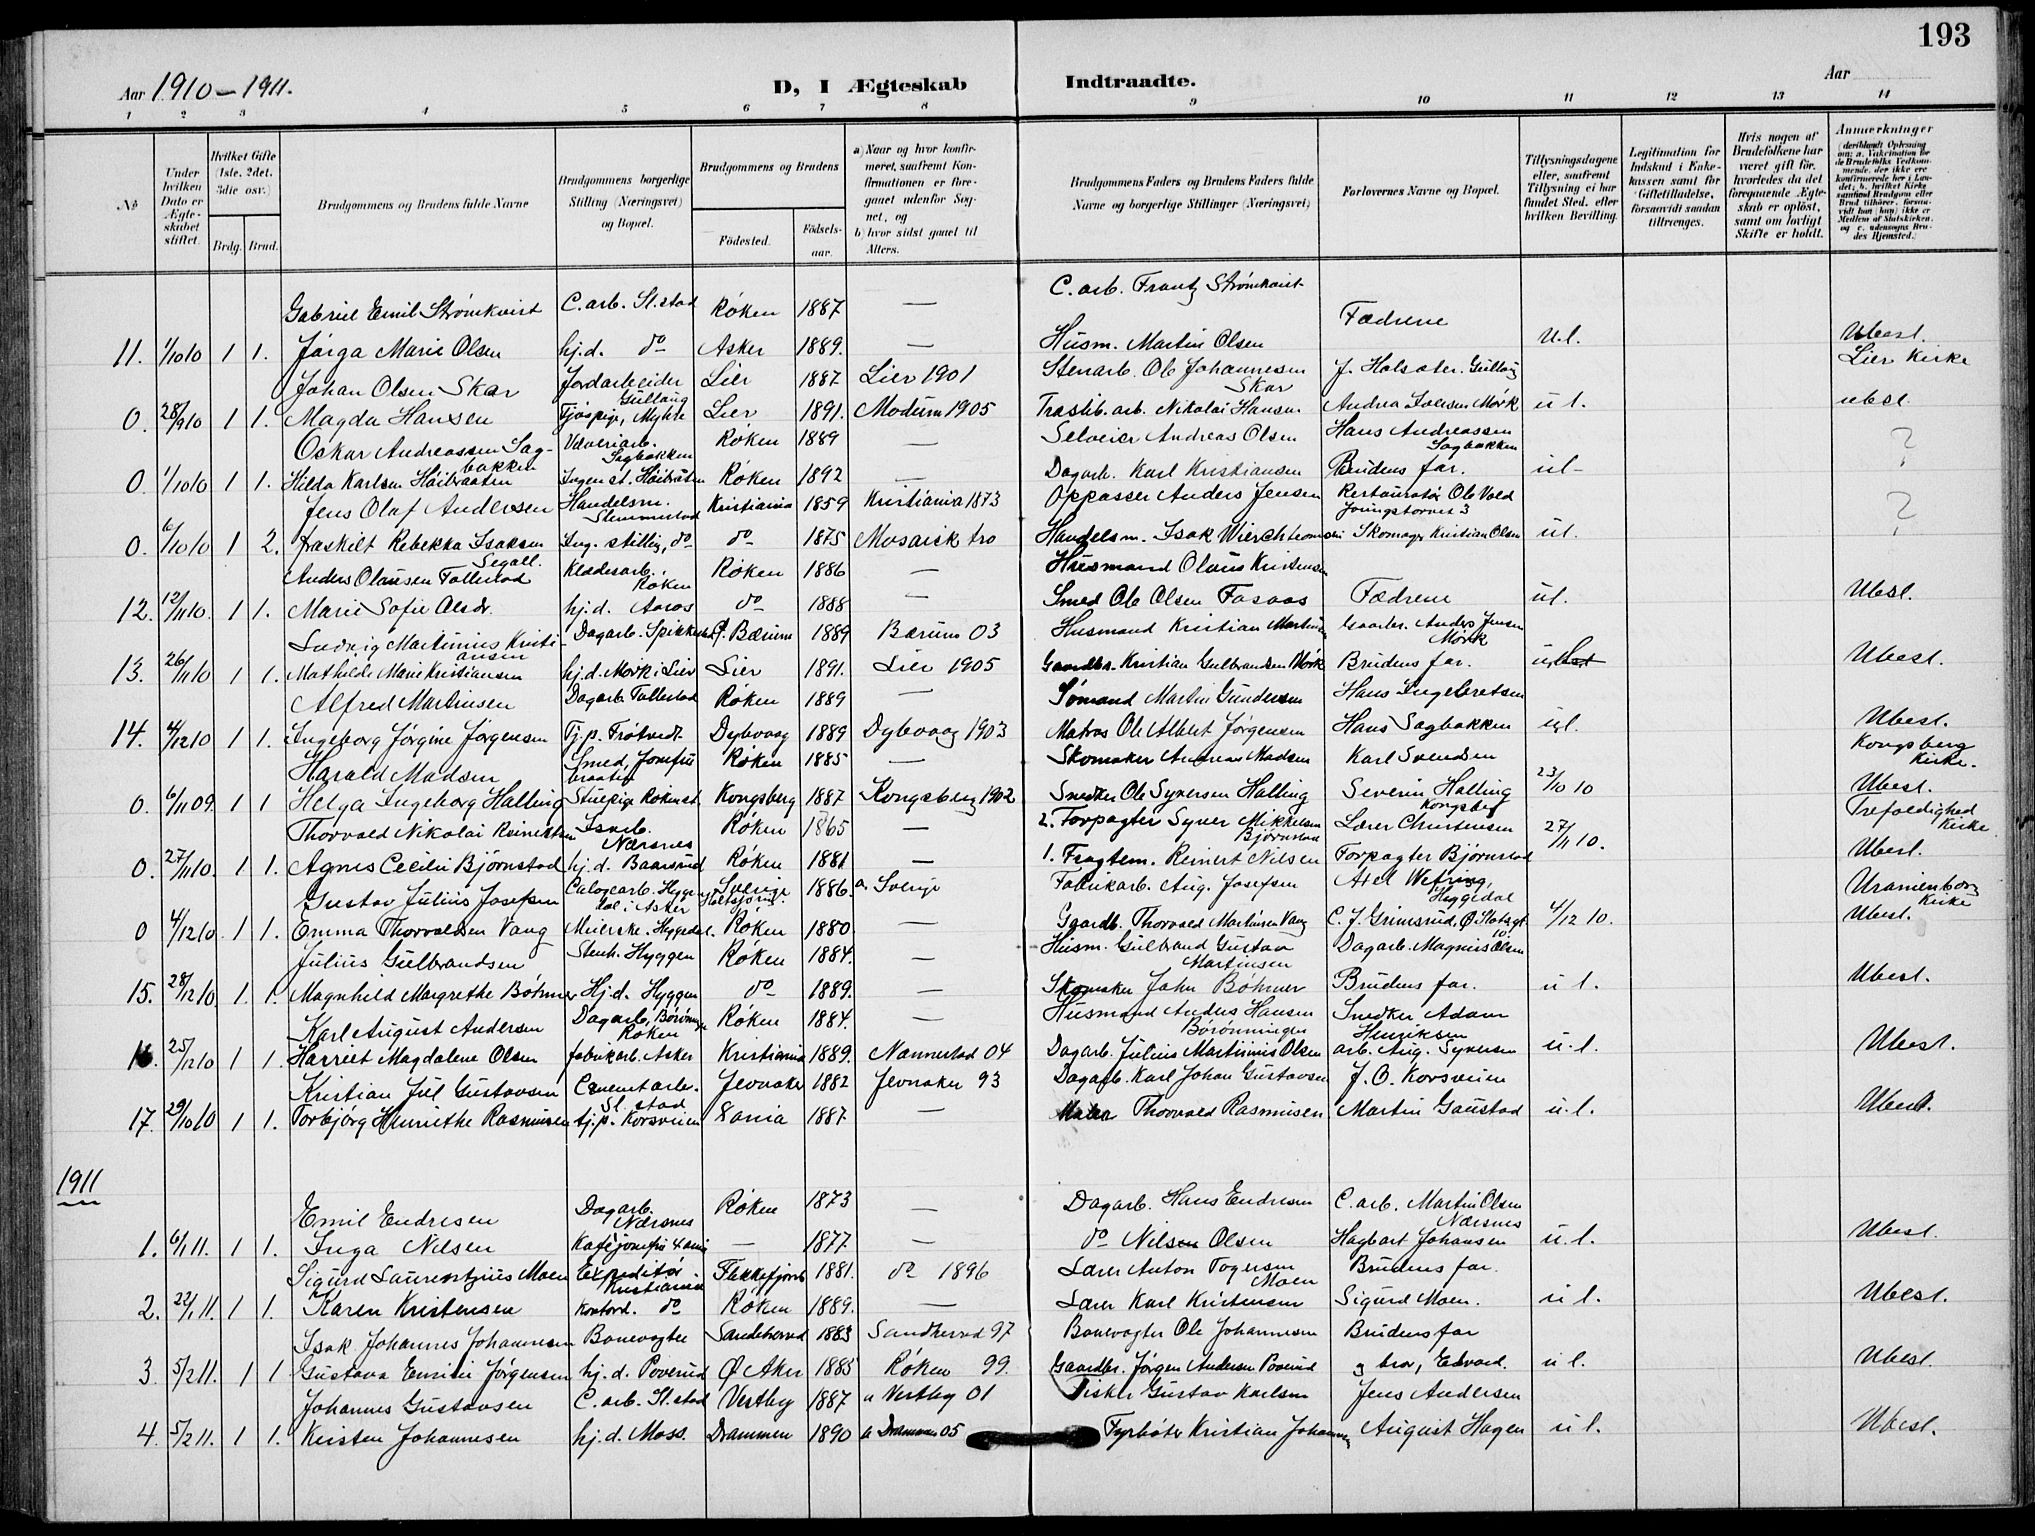 193
Aar 1910-1911. D, I Ægteskab Indtraadte. Aar
1 2 3 4 5 6 7 8 9 10 11 12 13 14
No
Under hvilken Dato er Ægteskabet stiftet.
Hvilket Gifte (1ste, 2det, 3die osv.)
Brdg. Brud.
Brudgommens og Brudens fulde Navne
Brudgommens borgerlige Stilling (Næringsvei) og Bopæl.
Brudgommens og Brudens
Fødested. Fødselsaar.
a) Naar og hvor konfirmeret, saafremt Konfirmationen er foregaaet udenfor Sognet, og
b) hvor sidst gaaet til Alters.
Brudgommens Faders og Brudens Faders fulde Navne og borgerlige Stillinger (Næringsvei)
Forlovernes Navne og Bopæl.
Tillysningsdagene eller, saafremt Tillysning ei har fundet Sted, efter hvilken Bevilling.
Legitimation for Indskud i Enkekassen samt for Giftetilladelse, forsaavidt saadan tiltrænges.
Hvis nogen af Brudefolkene har været gift før, hvorledes da det foregaaende Ægteskab er opløst, samt om lovligt Skifte er holdt.
Anmerkninger
Gabriel Emil Strömkvist C. arb. Sl.stad Röken 1887 — C. arb. Frantz Strømkvist Fædrene
11. 1/10 10 1 1. Jørga Marie Olsen hj.d. do Asker 1889. — Husm. Martin Olsen u.l. Ubesl.
Johan Olsen Skar Jordarbeider Gullaug Lier 1887 Lier 1901 Stenarb. Ole Johannesen Skar J. Halsater. Gullaug Lier Kirke
0. 28/9 10 1 1. Magda Hansen Tjpige, Mykle Lier 1891. Modum 1905 Træslib. arb. Nikolai Hansen Andrea Mørk u l. ubesl.
Oskar Andreassen Sagbakken Uldveriarb. Sagbakken Röken 1889 — Selveier Andreas Olsen Hans Andreassen Sagbakken ?
0. 1/10 10 1 1. Hilda Karlsen Høibraaten Ingen st. Høibraaten Röken 1892 — Dagarb. Karl Kristiansen Brudens far. ul-
Jens Olaf Andersen Handelsm. Slemmestad Kristiania 1859 Kristiania 1873 Oppasser Anders Jensen Restauratør Ole Vold Youngstorvet 3 ?
0. 6/10 10 1 2. fraskilt Rebekka Isaksen Segall. Ing. stilling, do do 1875 Mosaisk tro Handelsm. Isak Skomager Kristian Olsen ul.
Anders Olausen Follestad Klædesarb. Röken Röken 1886 — Husmand Olaus Kristensen
12. 12/11 10. 1 1. Marie Sofie Olsdr. hj.d. Aaros do 1888 — Smed Ole Olsen Fasaas Fædrene ul. Ubesl.
Ludvig Martinius Kristiansen Dagarb. Spikkestad Ø. Bærum 1889 Bærum 03 Husmand Kristian Martinsen Gaardbr. Anders Jensen Mørk
13. 26/11 10 1 1. Mathilde Marie Kristiansen hj.d. Mørk i Lier Lier 1891. Lier 1905 Gaardbr. Kristian Gulbrandsen Mørk Brudens far. ul. Ubesl.
Alfred Martinsen Dagarb. Follestad Röken 1889 — Sømand Martin Gundersen Hans Ingebretsen
14. 4/12 10 1 1. Ingeborg Jörgine Jörgensen Tj.p. Frøtvedt. Dybvaag 1889 Dybvaag 1903 Matros Ole Albert Jørgensen Hans Sagbakken ul. Ubesl.
Harald Madsen Smed, Josefinebraaten Röken 1885 — Skomaker Andreas Madsen Karl Svendsen Kongsberg Kirke.
0. 6/11 09. 1 1 Helga Ingeborg Halling Stuepige Röken st. Kongsberg 1887 Kongsberg 1902 Snedker Ole Syversen Halling Severin Halling Kongsberg 23/10 10 Ubesl.
Thorvald Nikolai Reinertsen Isarb. Nærsnes Röken 1865 — 2. Forpagter Syver Mikkelsen Bjørnstad Lærer Christensen 27/11 10. Trefoldighed Kirke
0. 27/11 10. 1 1. Agnes Cecilie Bjørnstad hj.d. Baarsrud Röken 1881 — 1. Fragtem. Reinert Nilsen Forpagter Bjørnstad Ubesl.
Gustav Julius Josefsen Heggedal i Asker Sverige 1886. a. Sverige Fabrikarb. Aug. Josefsen Axel Wetring, Heggedal Uranienborg Kirke
0 4/12 10. 1 1. Emma Thorvaldsen Vang Meierske. Heggedal. Röken 1880 — Gaardb. Thorvald Martinsen Vang C. J. Grimsrud, Ø. Slotsgt. 10. 4/12 10. Ubesl.
Julius Gulbrandsen Stenh. Hyggen Röken 1884. — Husm. Gulbrand Gustav Martinsen Dagarb. Magnus Olsen
15. 28/12 10 1. 1. Magnhild Margrethe Bøhmer Hj.d. Hyggen do 1889. — Skomaker John Bøhmer Brudens far. u l. Ubesl.
Karl August Andersen Dagarb, Röken Röken 1884. — Husmand Anders Hansen Børønningen Snedker Adam Henriksen
16. 25/12 10 1 1. Harriet Magdalene Olsen fabrikarb. Asker Kristiania 1889. Nannestad 04 Dagarb. Julius Martinius Olsen arb. Aug. Syversen u.l. Ubesl.
Kristian Juel Gustavsen Cementarb. Sl. stad Jevnaker 1882 Jevnaker 93 Dagarb. Karl Johan Gustavsen J. O. Korsveien
17. 29/10 10 1 1. Torbjørg Henriethe Rasmusen tj.p. Korsveien Xania 1887. — Maler Thorvald Rasmusen Martin Gaustad u.l. Ubesl.
1911
Emil Endresen Dagarb. Nærsnes Röken 1873 — Dagarb. Hans Endresen C. arb. Martin Olsen Nærsnes
1. 6/1 11. 1 1. Inga Nilsen Kaféjomfru Xania — 1877. — do Nilsen Olsen Hagbart Johansen u. l. Ubesl.
Sigurd Laurentzius Moen Expeditør Kristiania Flekkefjord 1881. do 1896 Lærer Anton Togersen Moen Brudens far.
2. 22/1 11. 1 1. Karen Kristensen Kontord. do Röken 1889. — Lærer Karl Kristensen Sigurd Moen. u l. Ubesl.
Isak Johannes Johannesen Banevogter Sandeherred 1883 Sandherred 97 Banevogter Ole Johannesen Brudens far
3. 5/2 11. 1 1 Gustava Emilie Jørgensen hj. d. Poverud Ø Aker 1885 Röken 99. Gaardbr. Jørgen Andersen Poverud og bror, Edvard. u l. Ubesl.
Johannes Gustavsen C. arb. Sl.stad Vestby 1887 a Vestby 01 Fisker Gustav Karlsen Jens Andersen
4. 5/2 11. 1 1. Kirsten Johannesen hj.d. Moss. Drammen 1890 a Drammen 05 Fyrbøter Kristian Johannesen August Hagen u l. Ubesl.